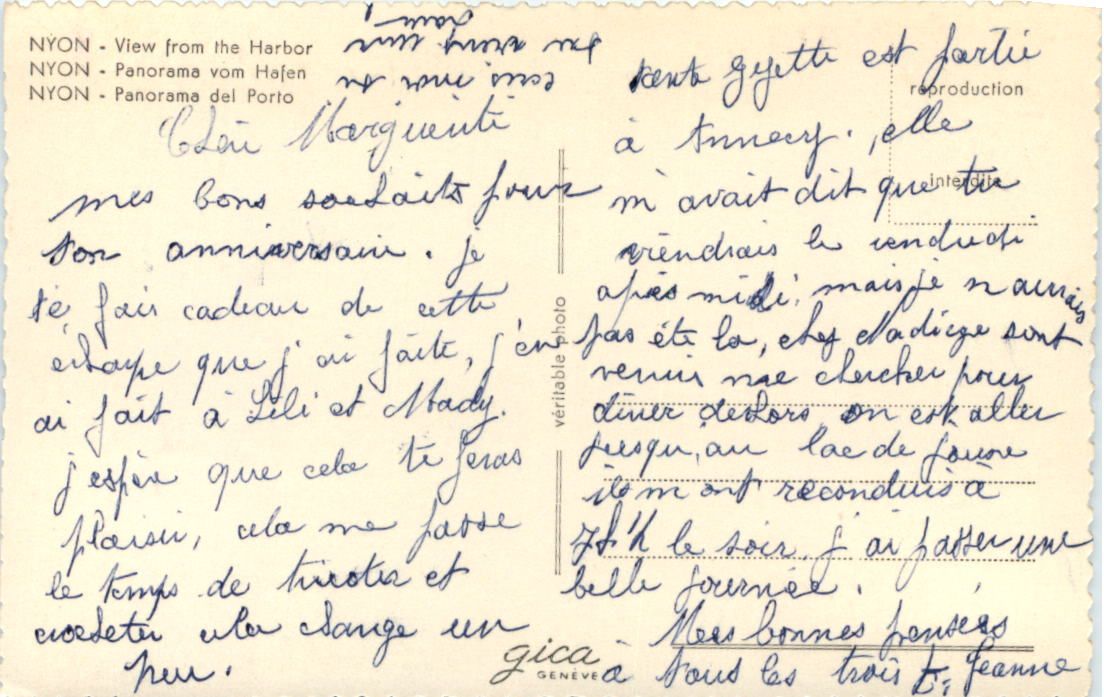 NYON - View from the Harbor
NYON - Panorama vom Hafen
NYON - Panorama del Porto
Chère Marguerite
mes bons souhaits pour
ton anniversaire. je
te fais cadeau de cette
écharpe que j'ai faite, j'en
ai fait à Lili et Mady.
j'espère que cela te feras
plaisir, cela me passe
le temps de tricoter et
crocheter cela change un
peu.
véritable photo
gica
GENÈVE
reproduction
interdite
tente Gyette est partie
à Annecy. elle
m'avait dit que tu
viendrais le vendredi
après midi, mais je n'aurais
pas été la, chez Nadiege sont
venus me chercher pour
diner dehors, on est aller
jusqu'au lac de joune
ils m'ont reconduis à
7h ½ le soir. j'ai passer une
belle journée.
Mes bonnes pensées
à tous les trois t. Jeanne